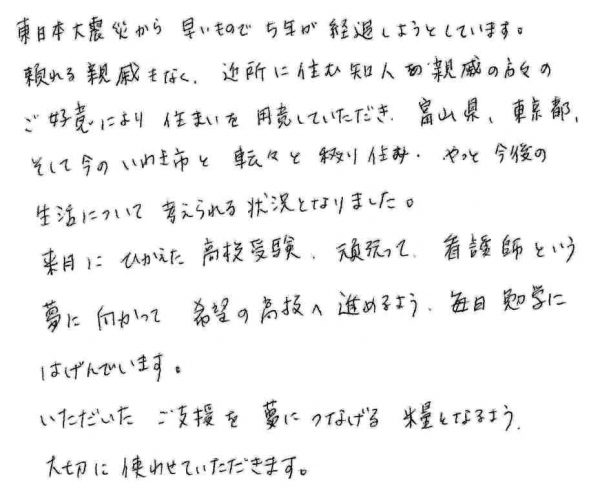 東日本大震災から 早いもので 5年が 経過しようとしています。
頼れる親戚もなく、近所に住む知人の親戚の方々の
ご好意により 住まいを 用意していただき、富山県、東京都、
そして今の いわき市と 転々と 移り住み、やっと 今後の
生活について 考えられる 状況となりました。
来月に ひかえた 高校受験、頑張って、看護師という
夢に 向かって 希望の高校へ 進めるよう、毎日 勉学に
はげんでいます。
いただいた ご支援を 夢に つなげる 糧となるよう、
大切に 使わせていただきます。